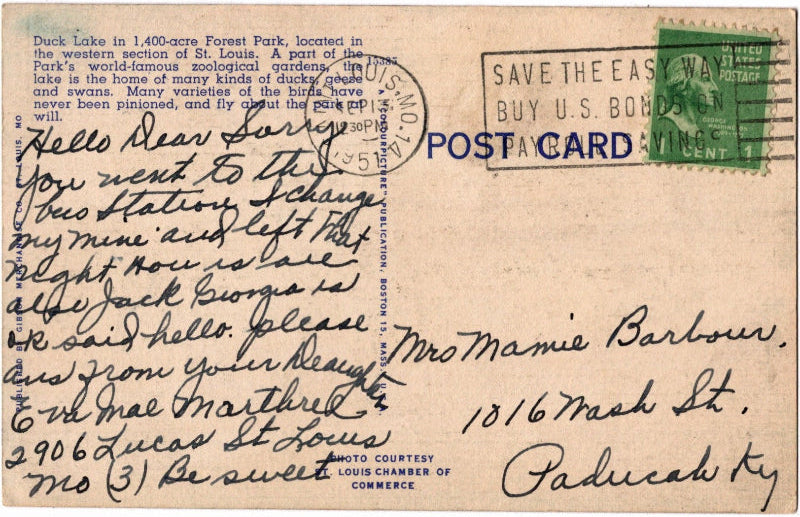 Duck Lake in 1,400-acre Forest Park, located in
the western section of St. Louis. A part of the
Park's world-famous zoological gardens, the
lake is the home of many kinds of ducks, geese
and swans. Many varieties of the birds have
never been pinioned, and fly about the park at
will.
15385
ST. LOUIS, MO. 14
SEP 13
12 30 PM
1951
SAVE THE EASY WAY
BUY U.S. BONDS ON
PAYROLL SAVINGS
UNITED
STATES
POSTAGE
GEORGE
WASHINGTON
1 CENT 1
POST CARD
PUBLISHED BY GIBSON MERCHANDISE CO., ST. LOUIS, MO
A "COLOURPICTURE" PUBLICATION, BOSTON 15, MASS., U.S.A.
Hello Dear Sorry
you went to the
bus Station I change
my mine and left that
night How is are
also Jack Georgia is
ok said hello. please
ans From your Deaughter
Eva Mae Marthrel
2906 Lucas St Louis
Mo (3) Be sweet
Mrs Mamie Barbour.
1016 Wash St.
Paducah Ky
PHOTO COURTESY
ST. LOUIS CHAMBER OF
COMMERCE